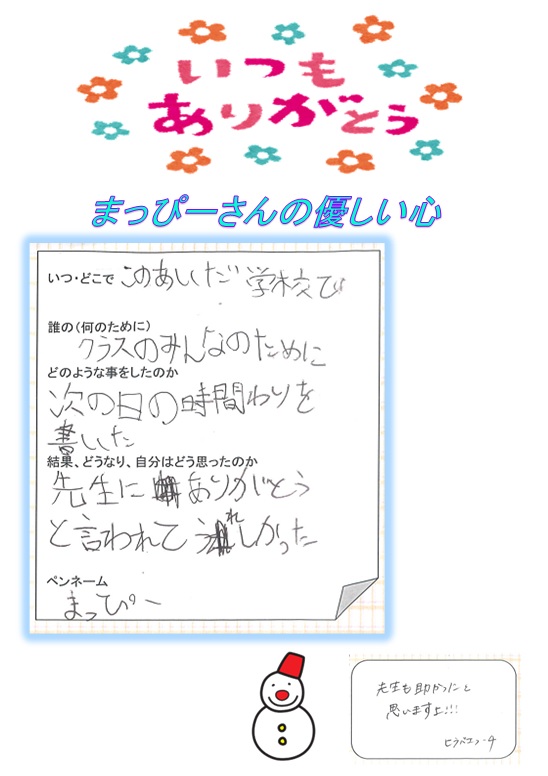 いつも
ありがとう
まっぴーさんの優しい心
いつ・どこで このあいだ 学校で
誰の(何のために)
クラスのみんなのために
どのような事をしたのか
次の日の時間わりを
書いた
結果、どうなり、自分はどう思ったのか
先生に ありがとう
と言われて うれしかった
ペンネーム
まっぴー
先生も助かったと
思いますよ!!!
ヒラバエコーチ